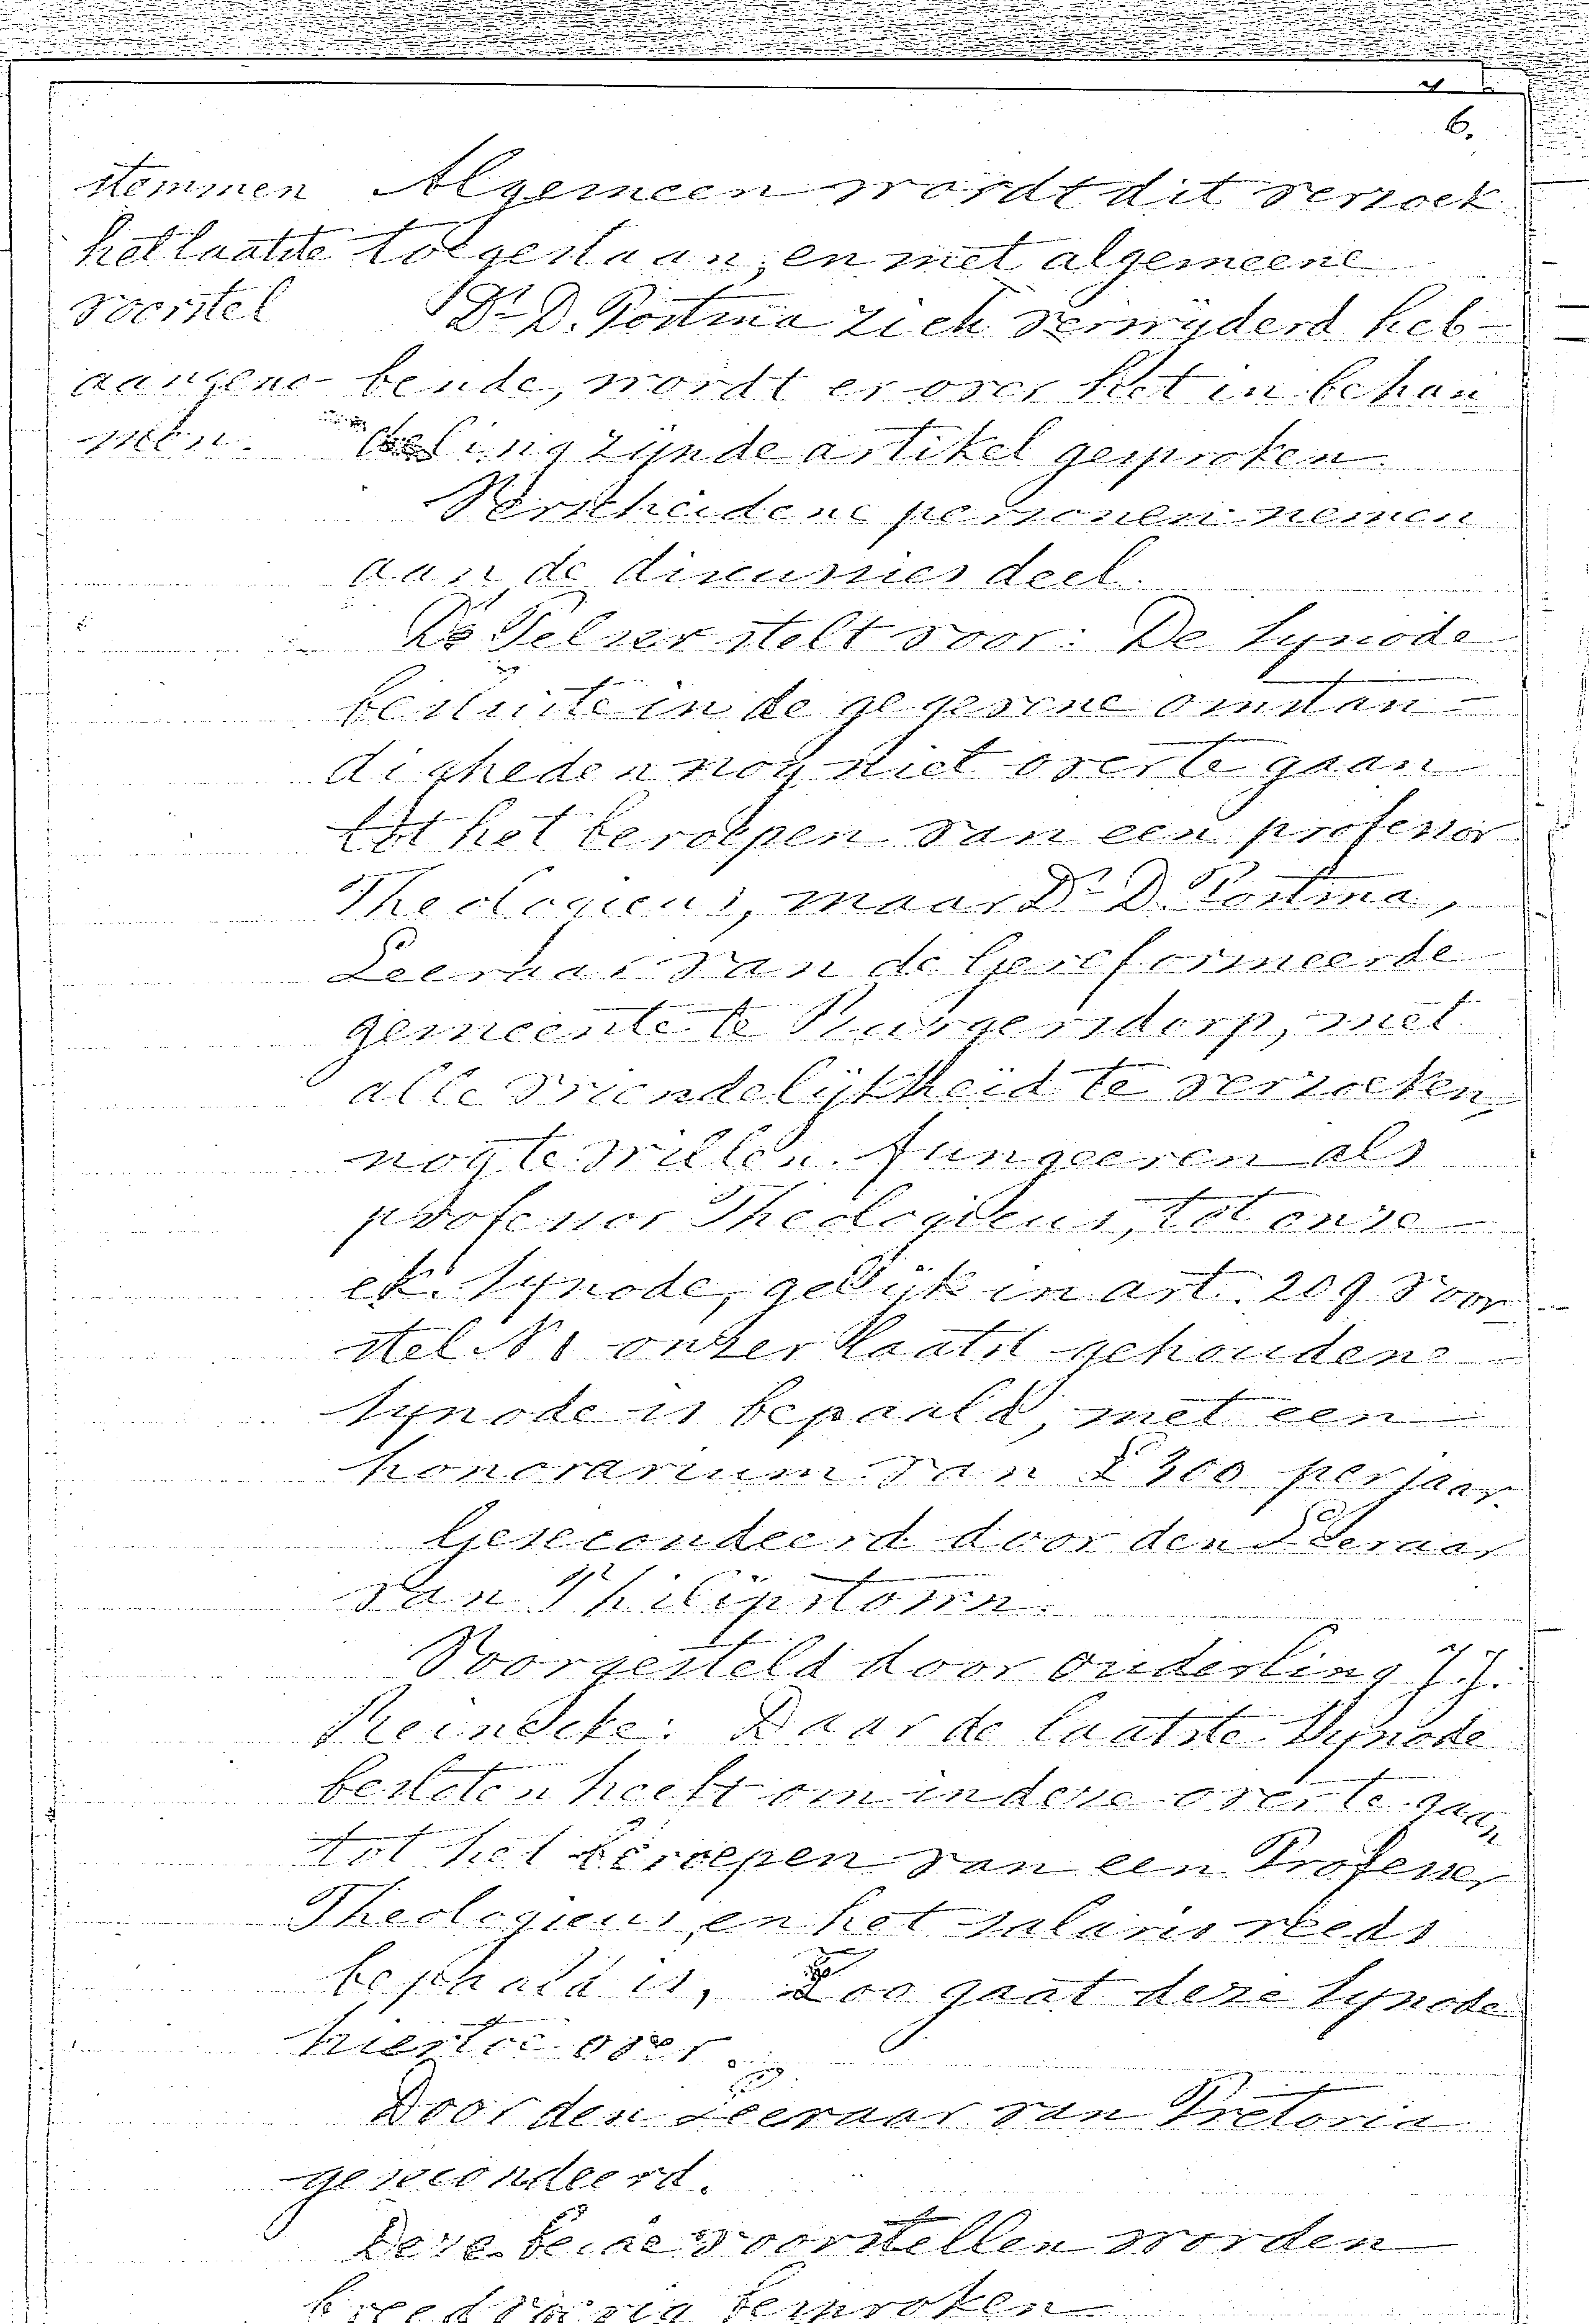 6.
stemmen
het laatste
voorstel
aangeno-
men.
Algemeen wordt dit verzoek
toegestaan, en met algemeene
Ds D. Postma zich verwijderd heb-
bende, wordt er over het in behan
deling zijnde artikel gesproken.
Verscheidene personen nemen
aan de discussies deel.
Ds Pelser stelt voor: De Synode
besluite in de gegevene omstan-
digheden nog niet over te gaan
tot het beroepen van een professor
Theologicus, maar Ds D. Postma,
Leeraar van de Gereformeerde
gemeente te Burgersdorp, met
alle vriendelijkheid te verzoeken,
nog te willen fungeeren als
professor Theologicus, tot onze
ek. Synode, gelijk in art. 209 voor
stel No onzer laatst gehoudene
Synode is bepaald, met een
honorarium van £300 per jaar.
Gesecondeerd door den Leeraar
van Philipstown.
Voorgesteld door ouderling J. J.
Reinecke: Daar de laatste Synode
besloten heeft om in deze over te gaan
tot het beroepen van een Professor
Theologicus, en het salaris reeds
bepaald is, Zoo gaat deze Synode
hiertoe over.
Door den Leeraar van Pretoria
gesecondeerd.
Deze beide voorstellen worden
breedvoerig besproken